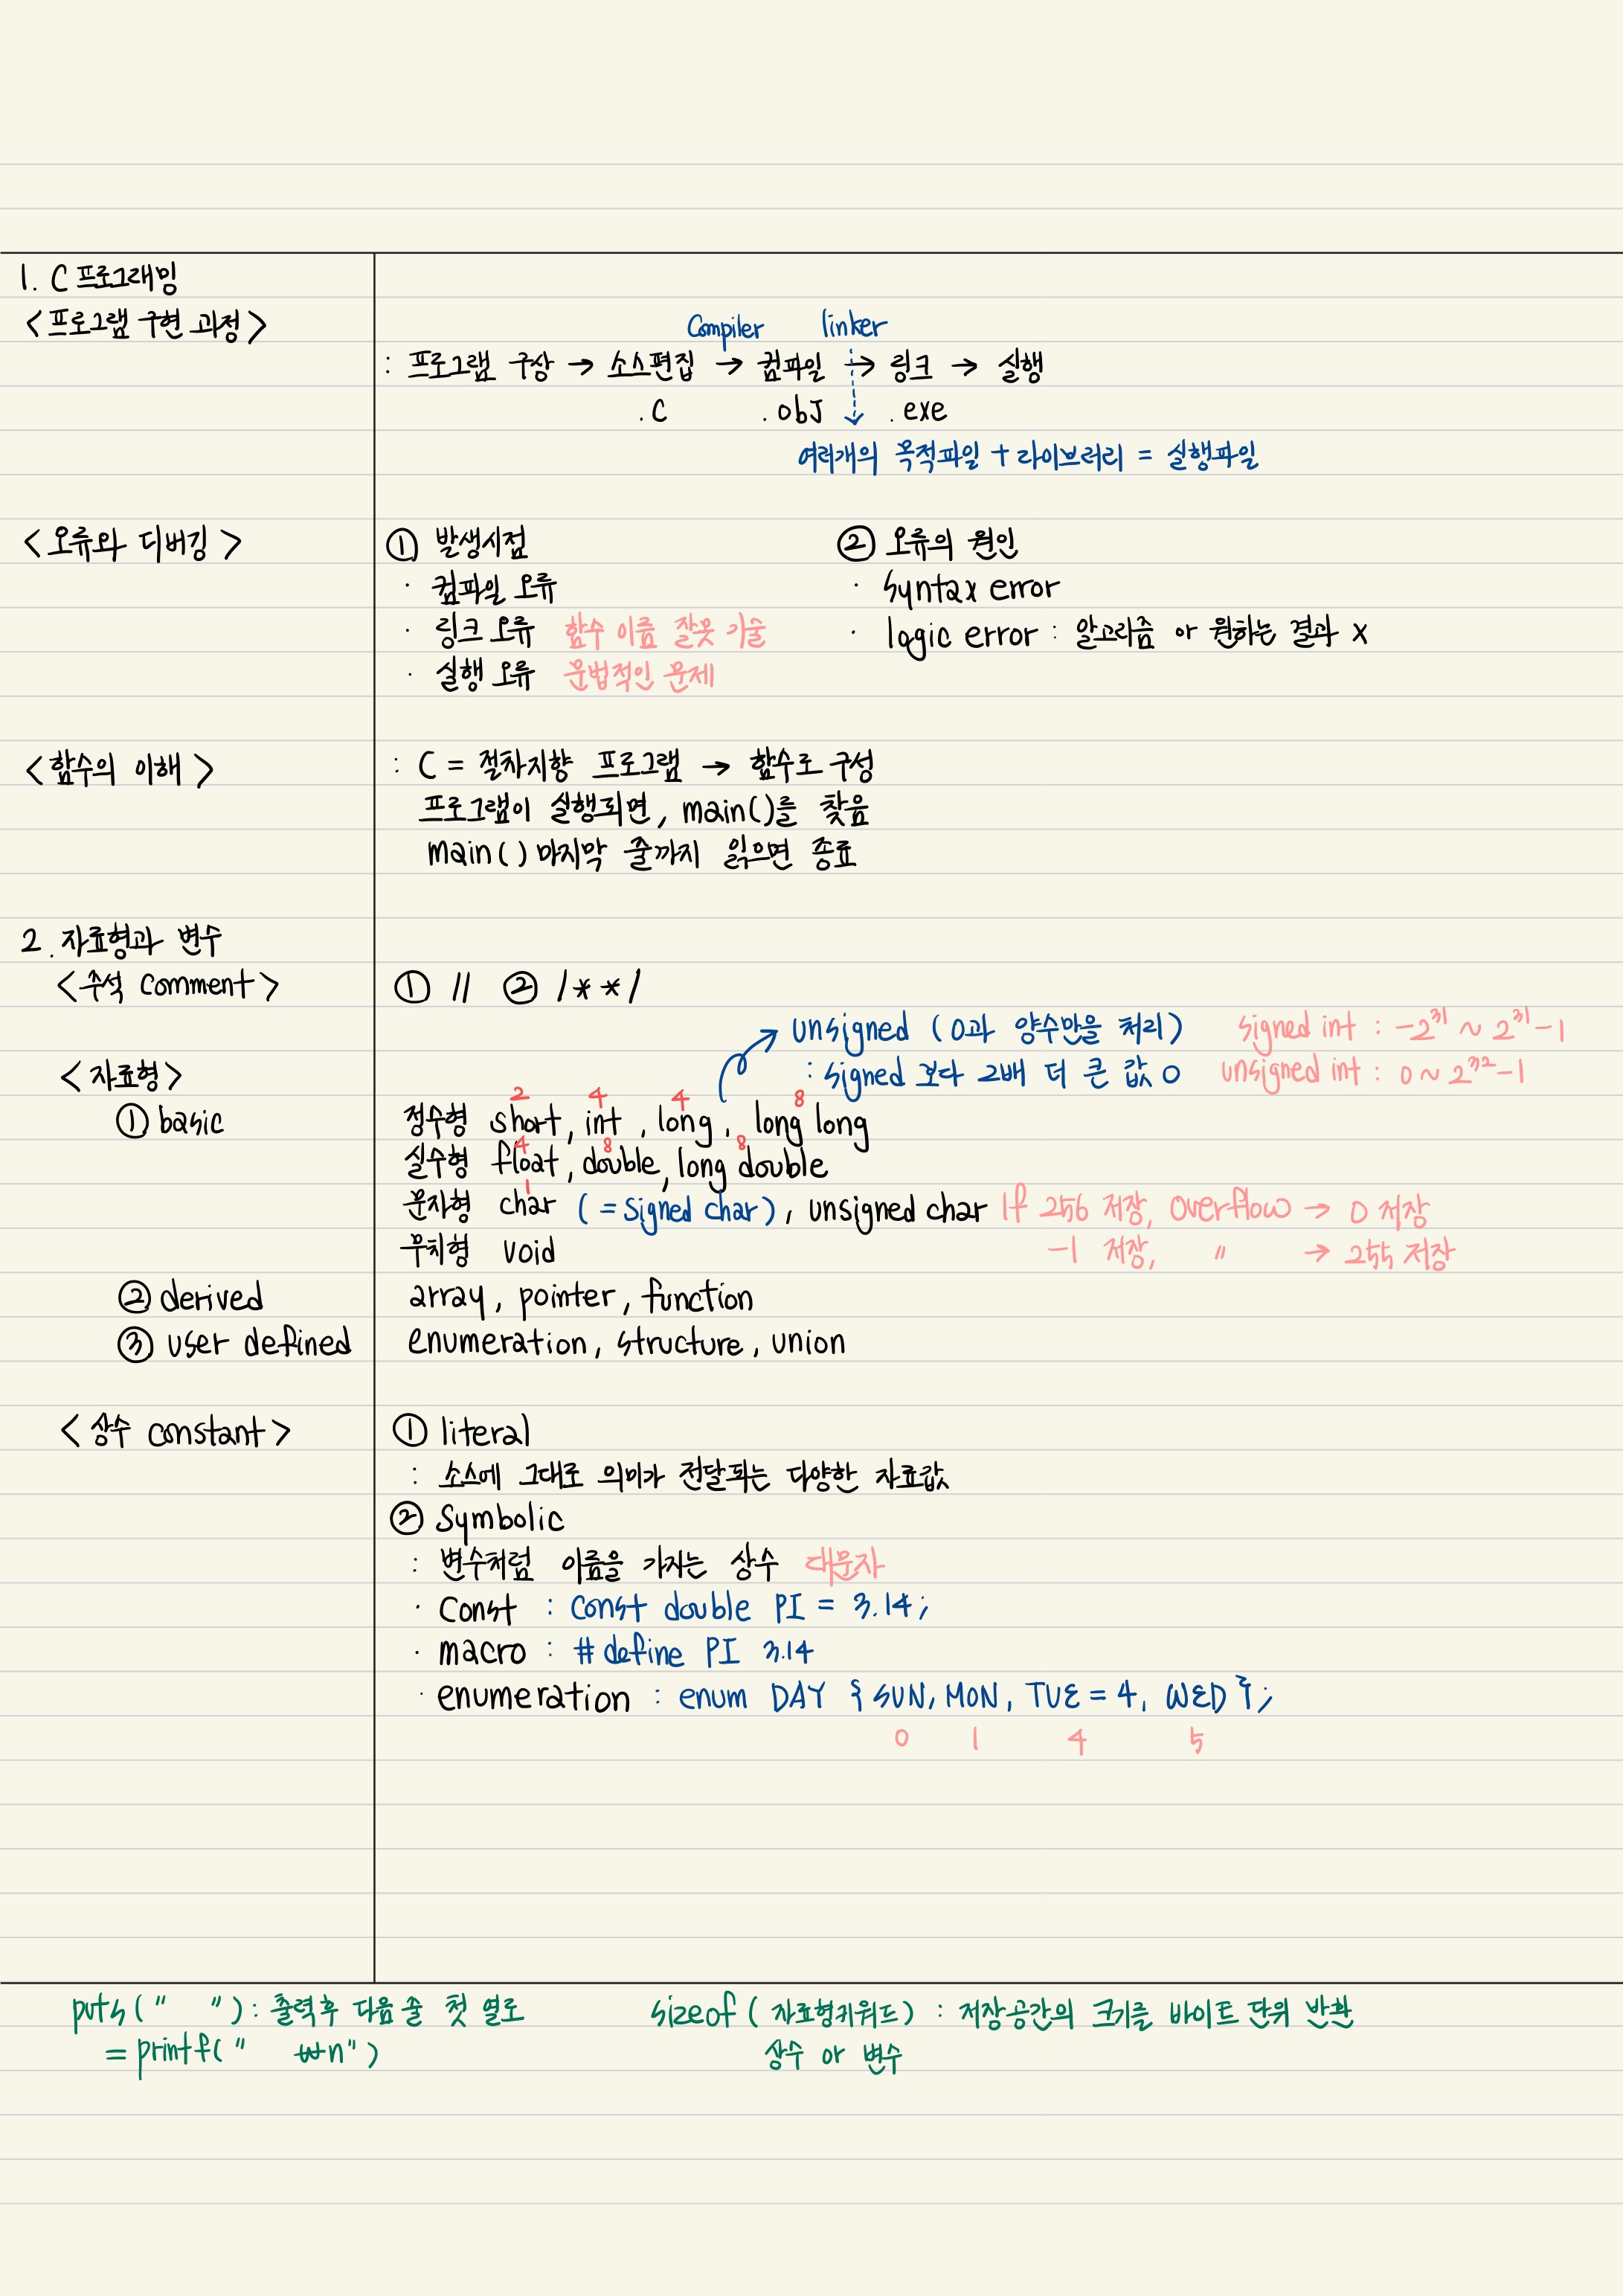 1. C 프로그래밍
<프로그램 구현 과정>
Compiler linker
: 프로그램 구상 → 소스편집 → 컴파일 → 링크 → 실행
.C .obJ .exe
여러개의 목적파일 + 라이브러리 = 실행파일
<오류와 디버깅>
① 발생시점
· 컴파일 오류
· 링크 오류 함수 이름 잘못 기술
· 실행 오류 문법적인 문제
② 오류의 원인
· syntax error
· logic error : 알고리즘 or 원하는 결과 X
<함수의 이해>
: C = 절차지향 프로그램 → 함수로 구성
프로그램이 실행되면, main()를 찾음
main() 마지막 줄까지 읽으면 종료
2. 자료형과 변수
<주석 comment>
① // ② /* */
<자료형>
unsigned (0과 양수만을 처리) signed int : -2³¹ ~ 2³¹-1
: signed 보다 2배 더 큰 값 O unsigned int : 0 ~ 2³²-1
① basic
2 4 4 8
정수형 short, int, long, long long
4 8 8
실수형 float, double, long double
1
문자형 char (= signed char), unsigned char If 256 저장, overflow → 0 저장
무치형 void -1 저장, 〃 → 255 저장
② derived array, pointer, function
③ user defined enumeration, structure, union
<상수 constant>
① literal
: 소스에 그대로 의미가 전달되는 다양한 자료값
② Symbolic
: 변수처럼 이름을 가지는 상수 대문자
· Const : Const double PI = 3.14;
· macro : #define PI 3.14
· enumeration : enum DAY {SUN, MON, TUE = 4, WED};
0 1 4 5
puts(" ") : 출력후 다음 줄 첫 열로
= printf(" ₩n")
sizeof (자료형키워드) : 저장공간의 크기를 바이트 단위 반환
상수 or 변수